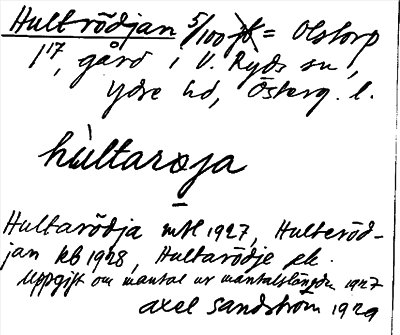 Hultrödjan 5/100 = Olstorp
1 17, gård i V. Ryds sn,
Ydre hd, Österg. l.
hùltaroja
Hultarödja mtl 1927, Hulteröd-
jan kb 1928, Hultarödje
Uppgift om mantal ur mantalslängden 1927
Axel Sandström 1929